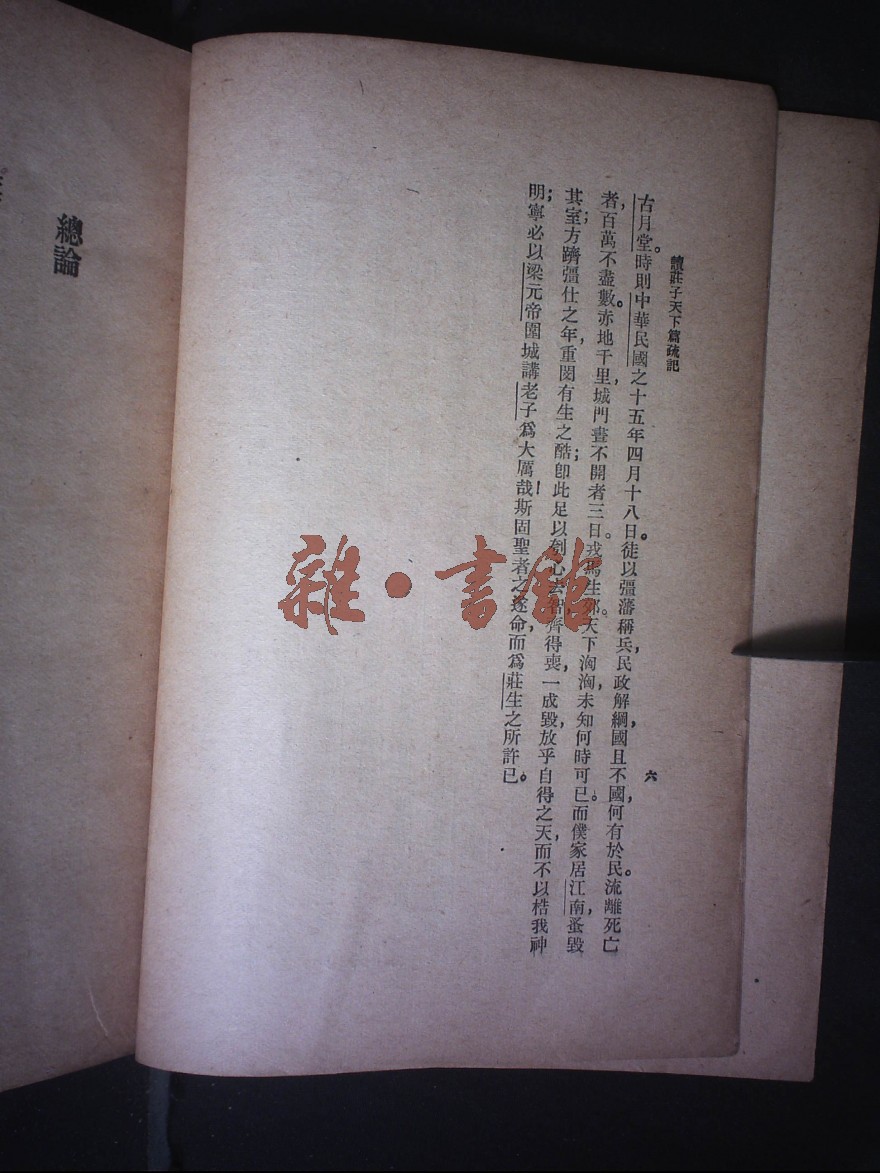 讀莊子天下篇疏記
六
古月堂。時則中華民國之十五年四月十八日。徒以彊藩稱兵，民政解綱，國且不國，何有於民。流離死亡
者，百萬不盡數。赤地千里，城門晝不開者三日。戎馬生郊。天下洶洶，未知何時可已。而僕家居江南，蚤毀
其室；方躋彊仕之年，重閔有生之酷；卽此足以刳心去智，齊得喪，一成毀，放乎自得之天，而不以梏我神
明；寧必以梁元帝圍城講老子爲大厲哉！斯固聖者之遂命，而爲莊生之所許已。
總論
雜·書館